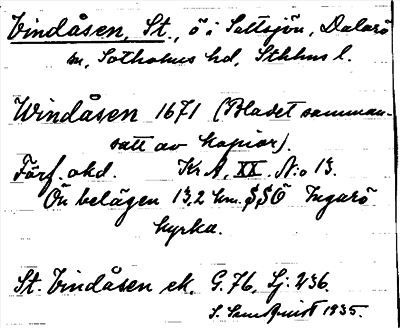 Vindåsen, St., ö i Saltsjön, Dalarö
sn, Sotholms hd, Sthlms l.
Windåsen 1671 (Bladet samman-
satt av kopior).
Förf. okd. Kr A. XX. N:o 13.
Ön belägen 13,2 km. SSÖ Ingarö
kyrka.
St. Vindåsen ek. G. 76, Lj: 236.
S. 1935.